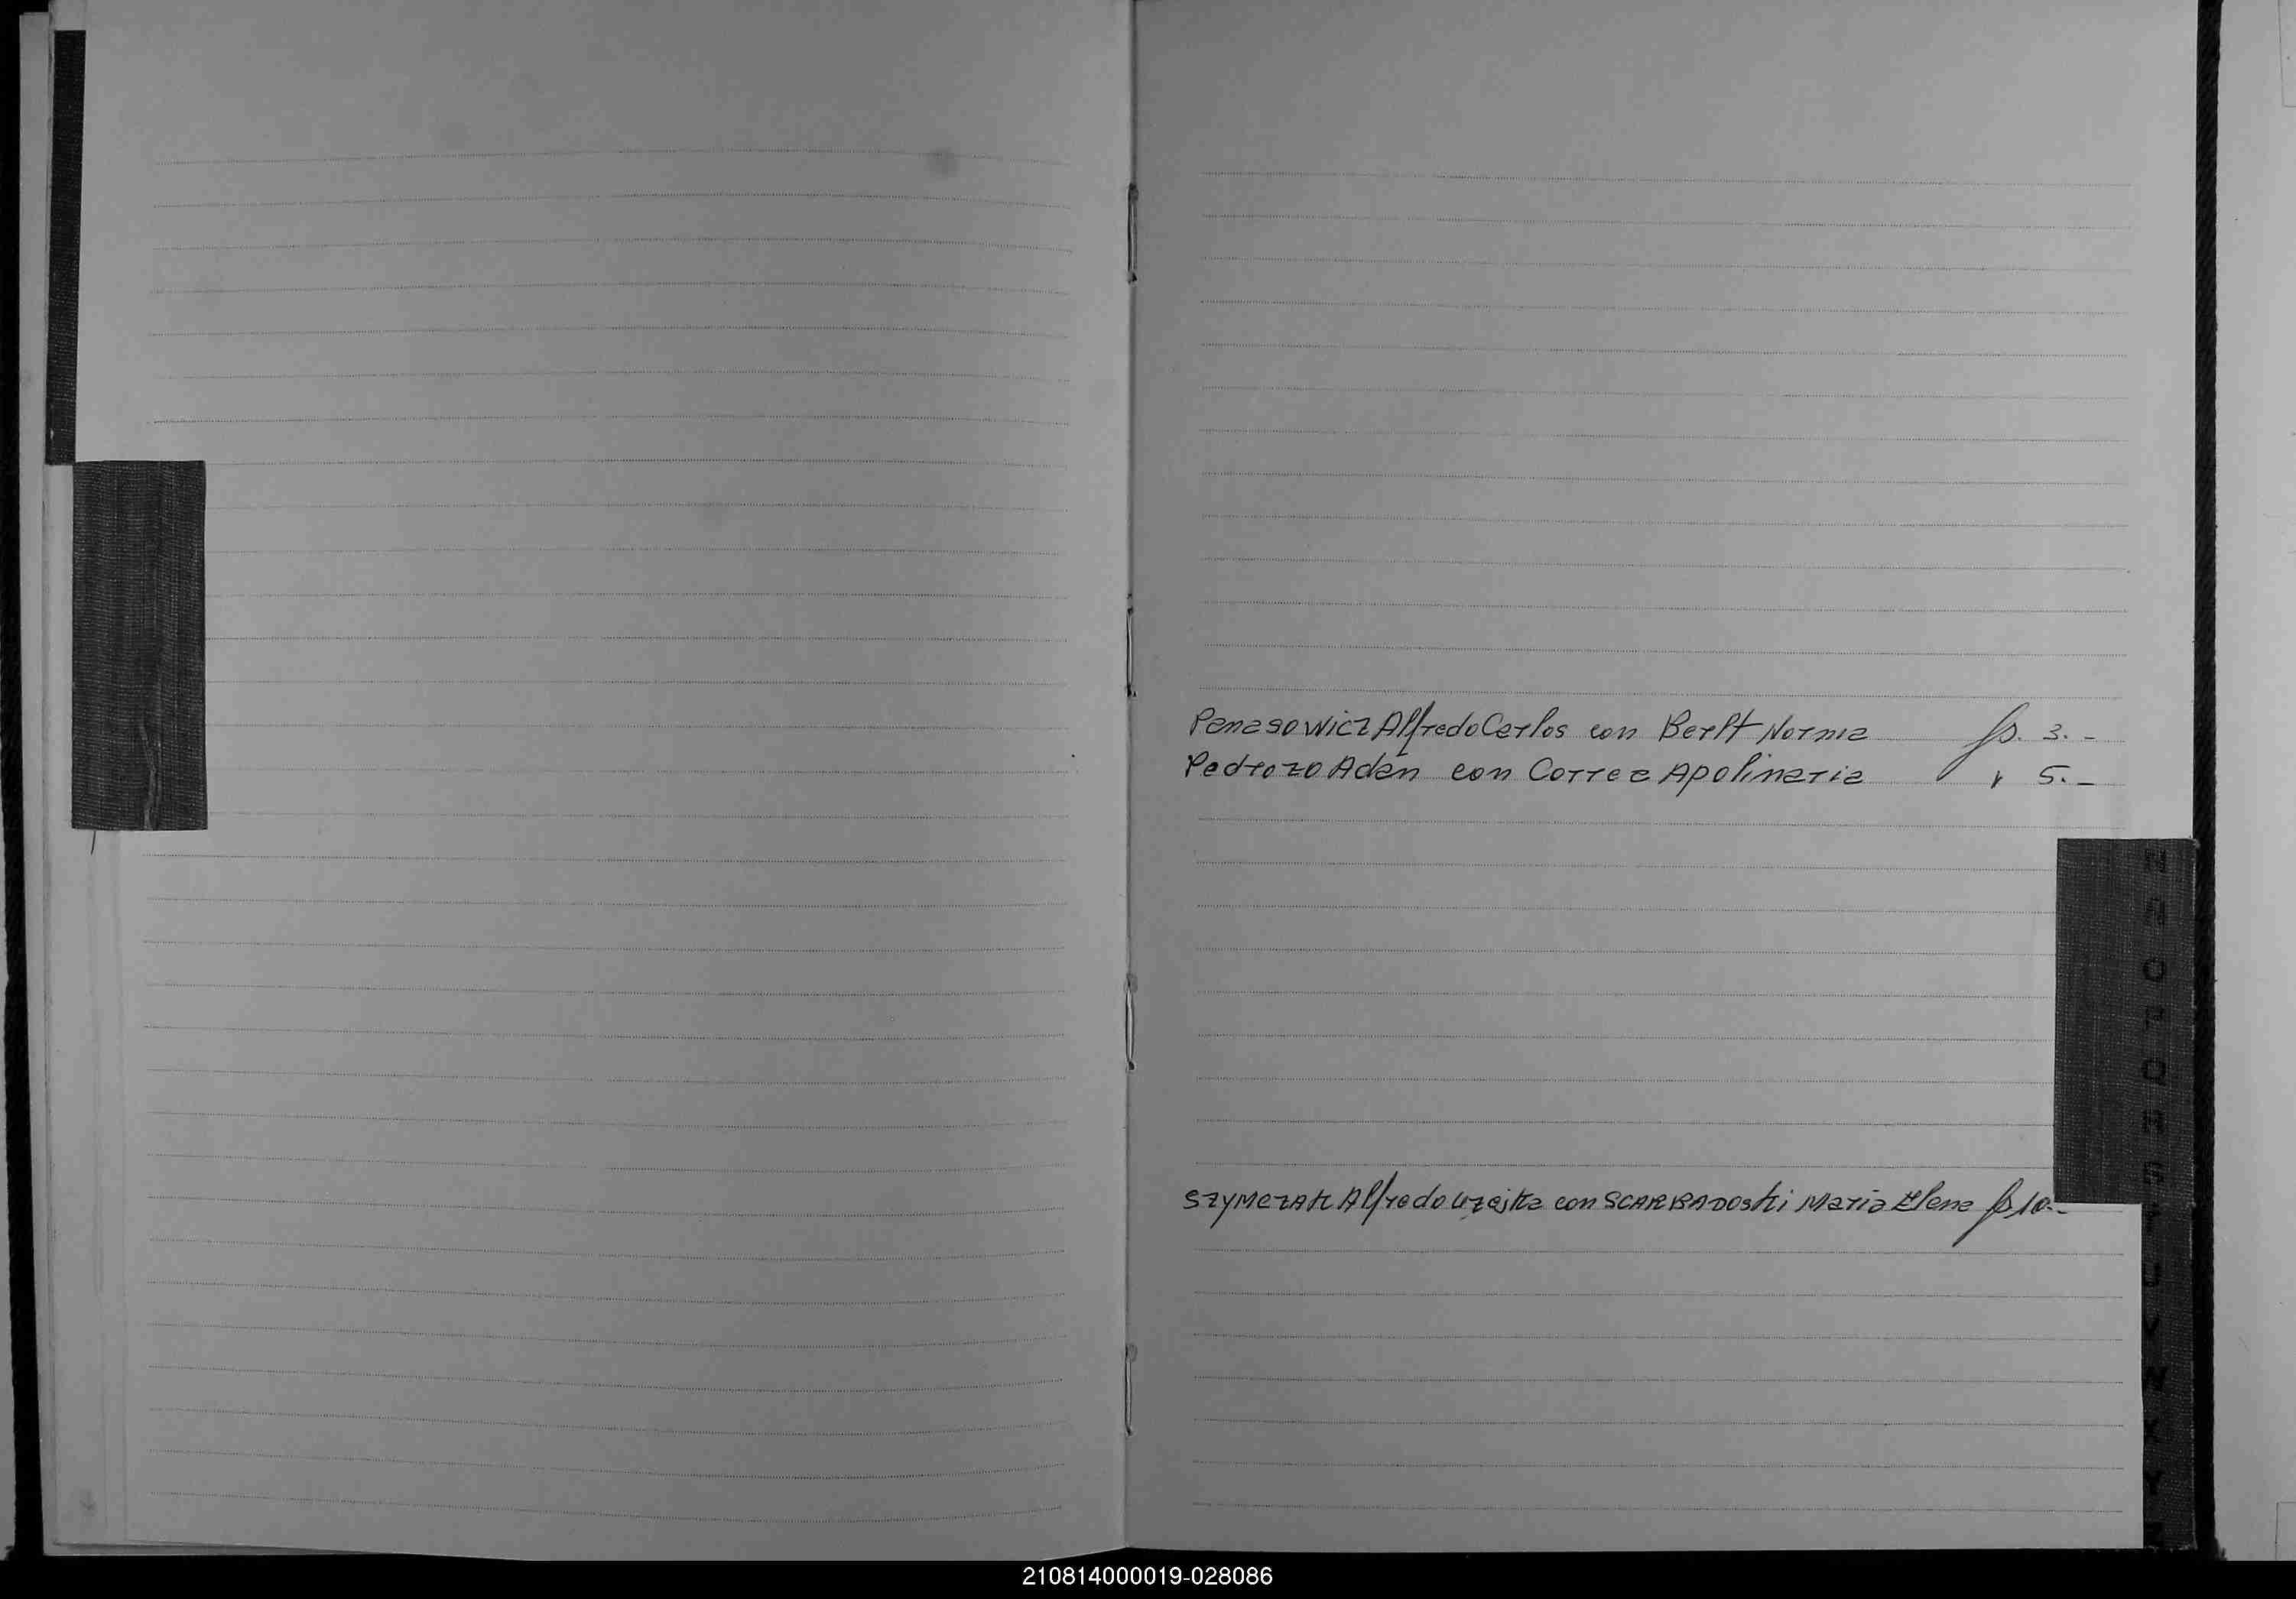 Panasowicz Alfredo Carlos con Berft Norma fs. 3.-
Pedrozo Adan con Correa Apolinaria " 5.-
N
Ñ
O
P
Q
R
S
SzyMczAK Alfredo con SCARBADOSKi Maria Elena fs 10.-
T
U
V
W
X
Y
Z
210814000019-028086